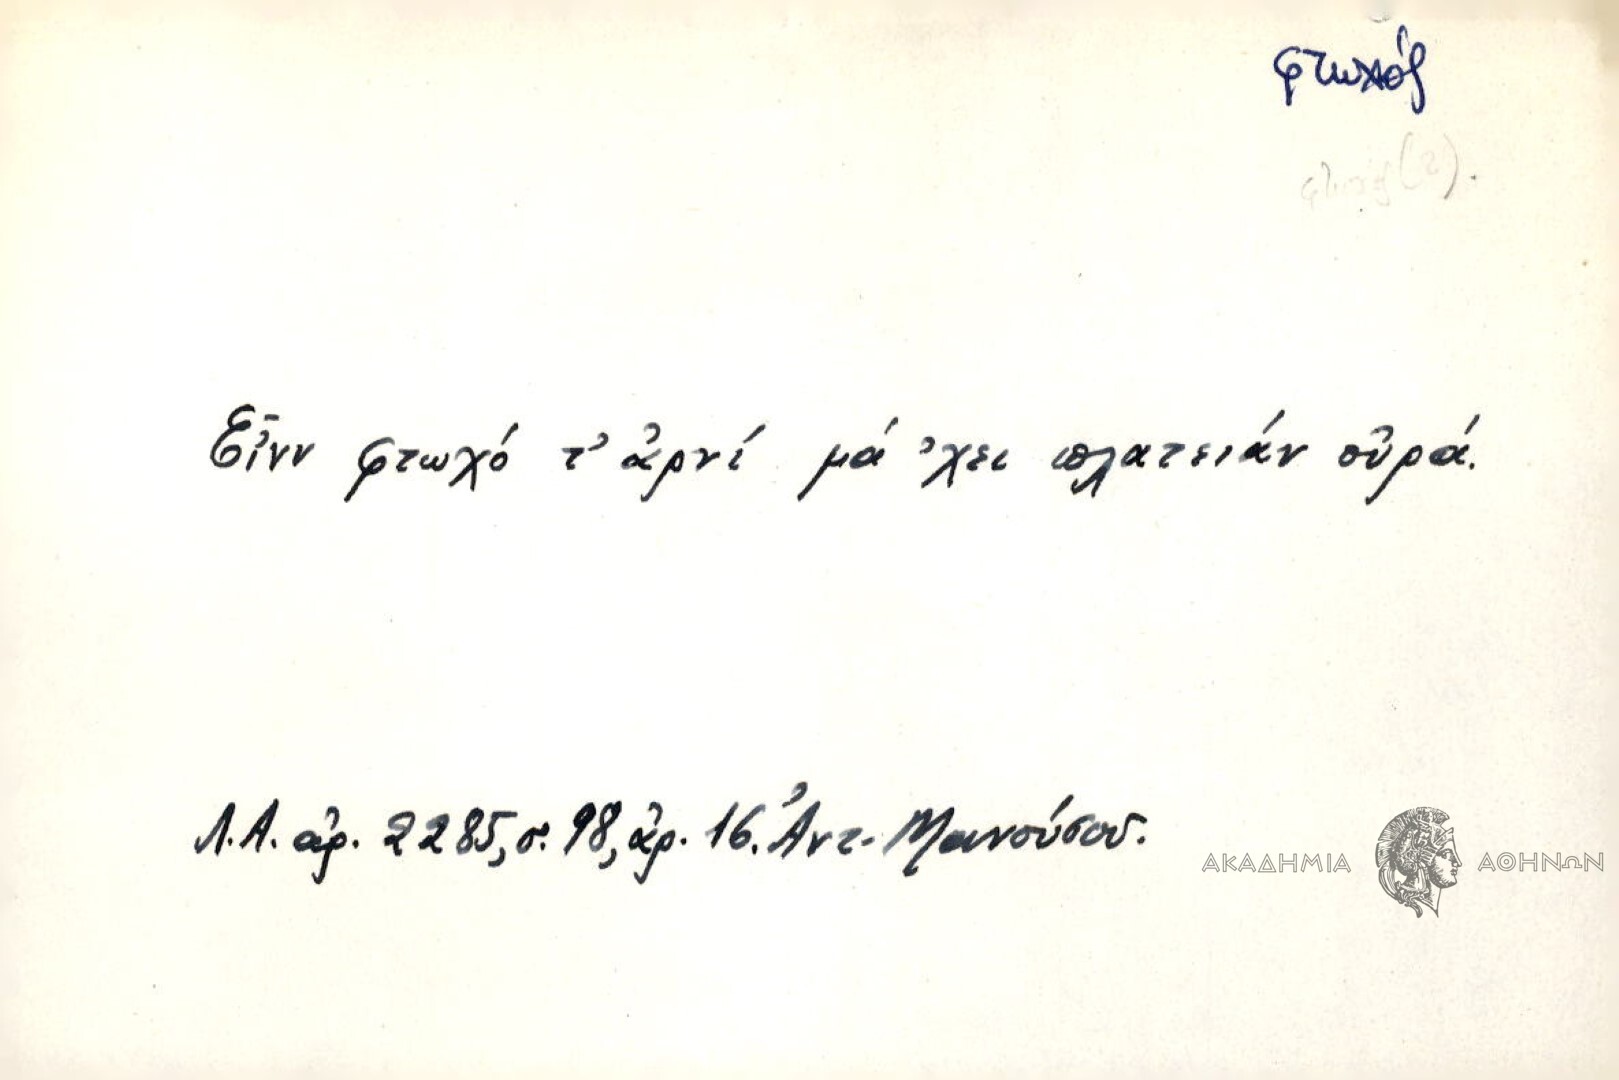 φτωχός
(2).
Εἶνν φτωχό τ' ἀρνί μά 'χει πλατειάν οὐρά.
Λ.Α. ἀρ. 2285, σ. 98, ἀρ. 16. Ἀντ. Μανούσου.
ΑΚΑΔΗΜΙΑ ΑΘΗΝΩΝ